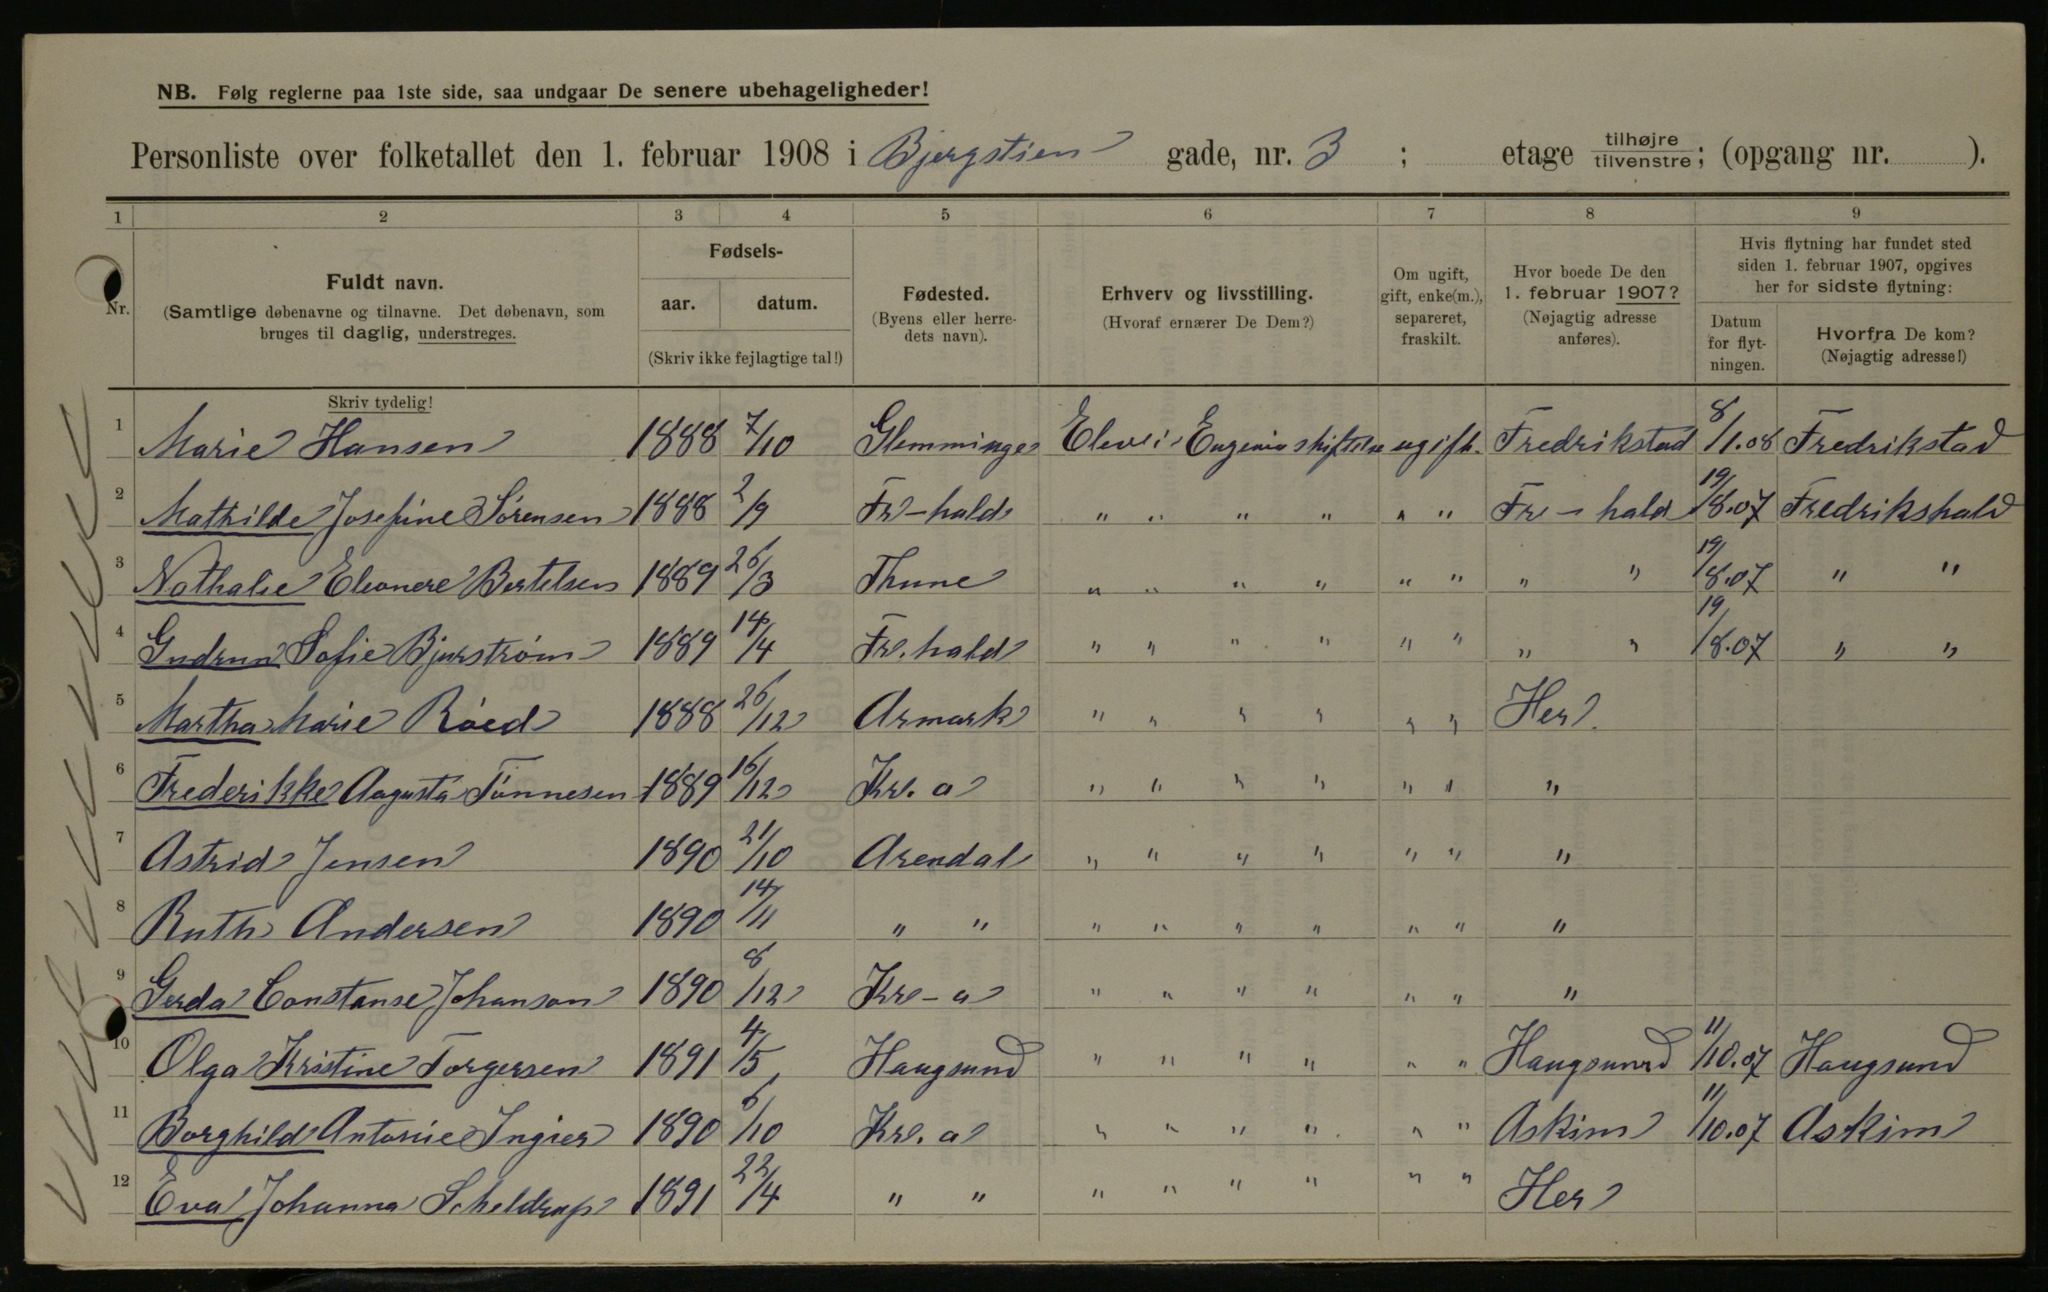 NB. Følg reglerne paa 1ste side, saa undgaar De senere ubehageligheder!
Personliste over folketallet den 1. februar 1908 i Bjergstien gade, nr. 3 ; etage tilhøjre tilvenstre; (opgang nr. ).
1 2 3 4 5 6 7 8 9
Nr.
Fuldt navn.
(Samtlige døbenavne og tilnavne. Det døbenavn, som
bruges til daglig, understreges.
Skriv tydelig!
Fødsels-
aar. datum.
(Skriv ikke fejlagtige tal!)
Fødested.
(Byens eller herre-
dets navn).
Erhverv og livsstilling.
(Hvoraf ernærer De Dem?)
Om ugift,
gift, enke(m.),
separeret,
fraskilt.
Hvor boede De den
1. februar 1907?
(Nøjagtig adresse
anføres).
Hvis flytning har fundet sted
siden 1. februar 1907, opgives
her for sidste flytning:
Datum
for flyt-
ningen.
Hvorfra De kom?
(Nøjagtig adresse!)
1 Marie Hansen 1888 7/10 Glemminge Elev i Eugenia stiftelse ugift. Fredrikstad 8/1.08 Fredrikstad
2 Mathilde Josefine Sørensen 1888 2/9 Fr-hald " " " " " " Fre-hald 19/8.07 Fredrikshald
3 Nathalie Eleonore Bertelsen 1889 26/3 Thune " " " " " " " " 19/8.07 " "
4 Gudrun Sofie Bjurstrøm 1889 14/4 Fr.hald " " " " " " " " 19/8.07 " "
5 Martha Marie Röed 1888 26/12 Armark " " " " " " Her.
6 Frederikke Augusta Tönnesen 1889 16/12 Kr.a " " " " " " "
7 Astrid Jensen 1890 21/10 Arendal " " " " " " "
8 Ruth Andersen 1890 14/11 " " " " " " " " "
9 Gerda Constanse Johanson 1890 8/12 Kr-a " " " " " " "
10 Olga Kristine Torgersen 1891 4/5 Haugsund " " " " " " Haugsund 11/10.07 Haugsund
11 Borghild Antonie Ingier 1890 6/10 Kr.a " " " " " " Askim 11/10.07 Askim
12 Eva Johanna Scheldrup 1891 22/4 " " " " " " " " Her